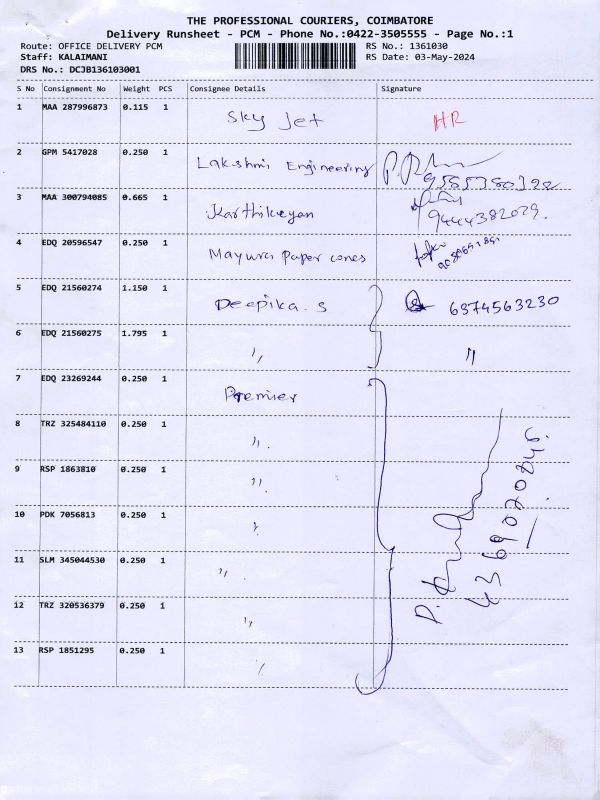 THE PROFESSIONAL COURIERS, COIMBATORE
Delivery Runsheet - PCM - Phone No.:0422-3505555 - Page No.:1
Route: OFFICE DELIVERY PCM RS No.: 1361030
Staff: KALAIMANI RS Date: 03-May-2024
DRS No.: DCJB136103001
S No Consignment No Weight PCS Consignee Details Signature
1 MAA 287996873 0.115 1 Sky Jet HR
2 GPM 5417028 0.250 1 Lakshmi Engineering
3 MAA 300794085 0.665 1 Karthikeyan 9444382029.
4 EDQ 20596547 0.250 1 Mayura Paper cones
5 EDQ 21560274 1.150 1 Deepika. S 6374563230
6 EDQ 21560275 1.795 1 " "
7 EDQ 23269244 0.250 1 Premier
8 TRZ 325484110 0.250 1 ".
9 RSP 1863810 0.250 1 ".
10 PDK 7056813 0.250 1 "
11 SLM 345044530 0.250 1 ".
12 TRZ 320536379 0.250 1 "
13 RSP 1851295 0.250 1 "